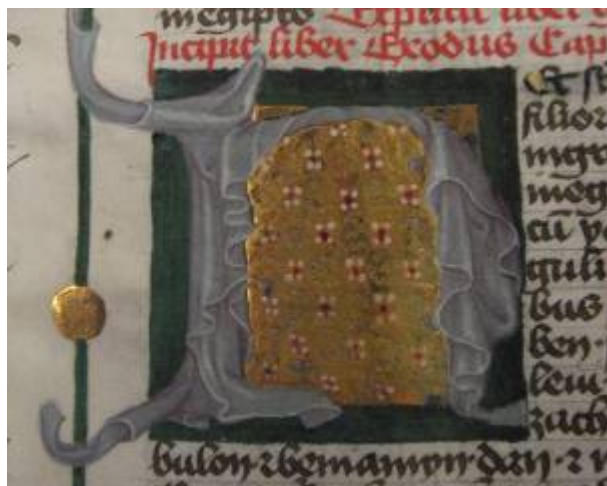 megipto Explicit liber
Incipit liber Exodus Cap
H
filior
ingr
meg
cū
guli
bus
ben·
leui
zach
bulon ⁊ beniamin· dan· ⁊